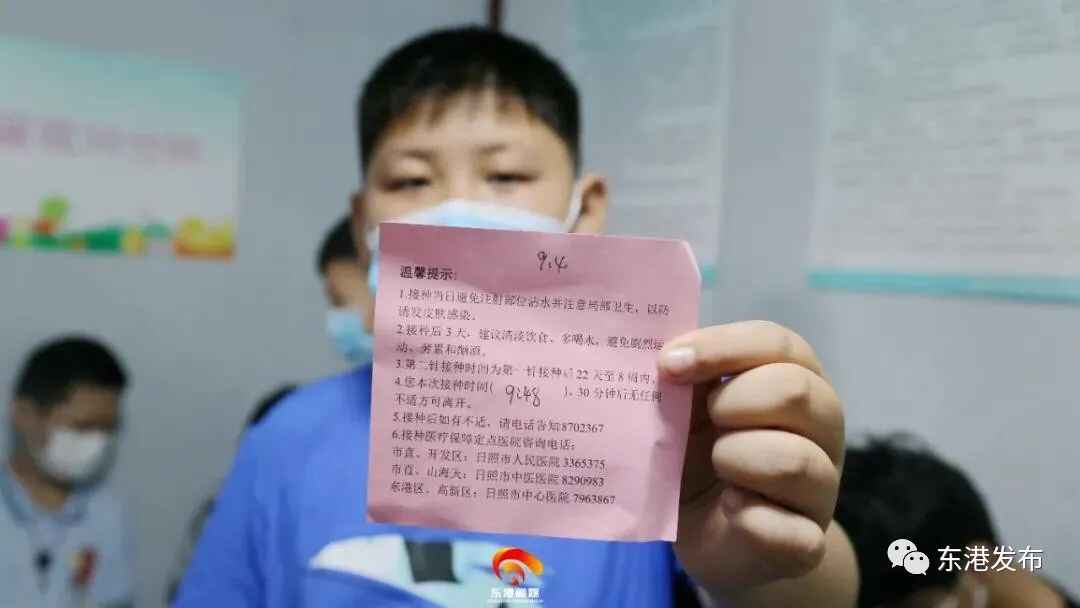 9.4
温馨提示:
1.接种当日避免注射部位沾水并注意局部卫生，以防
诱发皮肤感染。
2.接种后 3 天，建议清淡饮食、多喝水，避免剧烈运
动、劳累和酗酒。
3.第二针接种时间为第一针接种后 22 天至 8 周内。
4.您本次接种时间( 9:48 )，30 分钟后无任何
不适方可离开。
5.接种后如有不适，请电话告知8702367
6.接种医疗保障定点医院咨询电话：
市直、开发区：日照市人民医院 3365375
市直、山海天：日照市中医医院 8290983
东港区、高新区：日照市中心医院 7963867
东港融媒
东港发布